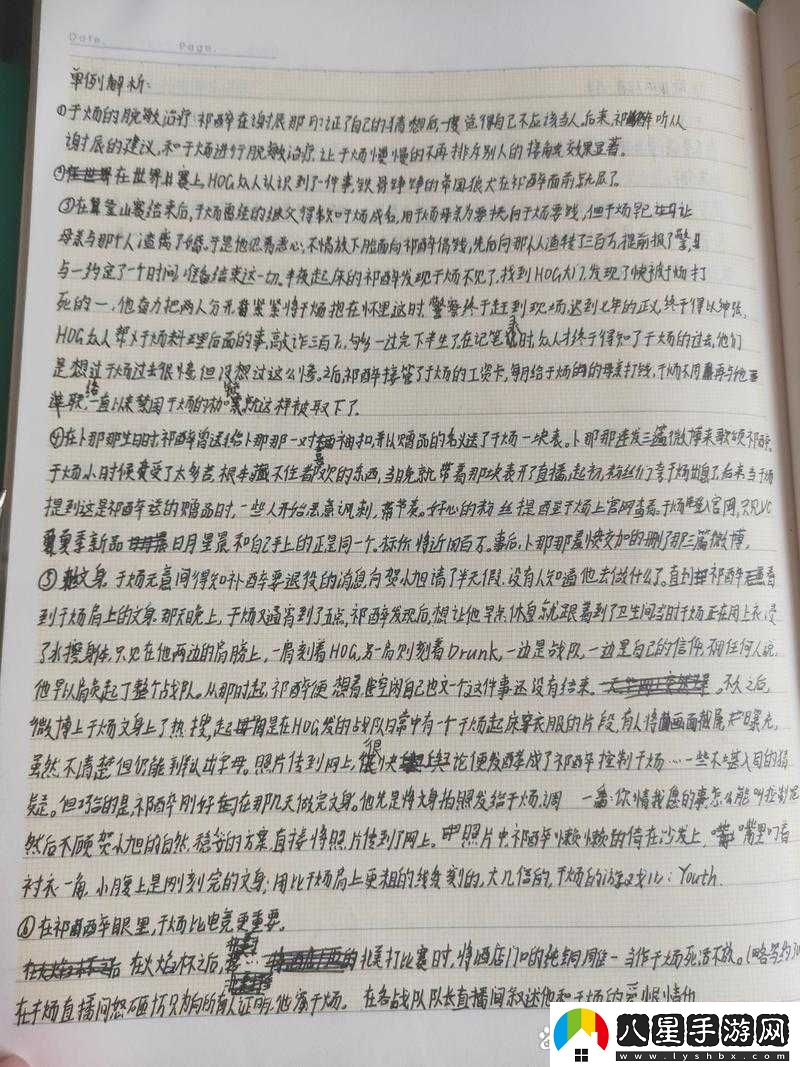 Date. Page.
单例解析:
①于炀的脱敏治疗:祁醉在谢辰那儿印证了自己的猜想后一度觉得自己不应该当人。后来,祁醉听从
谢辰的建议,和于炀进行脱敏治疗,让于炀慢慢的不再排斥别人的接触,效果显著。
②在世界赛上,HOG众人认识到了一件事,铁骨铮铮的帝国狼犬在祁醉面前
③在 赛结束后,于炀 继父得知于炀成名,用于炀母亲为要挟向于炀要钱,但于炀早已让
母亲与那个人 离了婚。于是他忍着恶心,不惜放下脸面向祁醉借钱,先后向那人 转了三百万,提前报了警,且
与一约定了一个时间,准备结束这一切。半夜起床的祁醉发现于炀不见了,找到HOG大门,发现了快被于炀打
死的一,他奋力把两人分开,紧紧将于炀抱在怀里,这时,警察终于赶到现场,迟到七年的正义,终于得以伸张。
HOG众人帮于炀料理后面的事,敲诈三百万,够 一过完下半生了。在记笔录时,众人才终于得知了于炀的过去,他们
是想过于炀过去很惨,但没想过这么惨。之后祁醉接管了于炀的工资卡,每月给于炀的母亲打钱,于炀不用再与他
联络,一直以来 于炀的 就这样被取下了。
④在卜那那生日时,祁醉曾送给卜那那一对袖扣,并以赠品的名义送了于炀一块表。卜那那连发三篇微博来歌颂祁醉。
于炀小时候 受了太多苦,根本藏不住喜欢的东西,当晚就带着那块表开了直播,起初,粉丝们夸于炀出息了,后来当于炀
提到这是祁醉送的赠品时,一些人开始恶意讽刺,带节奏。好心的粉丝提醒于炀上官网查看。于炀进入官网,
夏季新品 日月星晨和自己手上的正是同一个。标价将近四百万。事后,卜那那羞愤交加的删了那三篇微博。
⑤文身。于炀无意间得知祁醉要退役的消息,向贺小旭请了半天假,没有人知道他去做什么了。直到祁醉看
到于炀肩上的文身。那天晚上,于炀又通宵到了五点,祁醉发现后,想让他早点休息,就跟着到了卫生间,当时于炀正在用上衣浸
了水擦身体,只见在他两边的肩膀上,一肩刻着HOG,另一肩则刻着Drunk,一边是战队,一边是自己的信仰,不用任何人说,
他早以肩负起了整个战队。从那时起,祁醉便想着 空闲自己也文一个,这件事还没有结束。不久之后,
微博上于炀文身上了热搜,起因是在HOG发的战队日常中有一个于炀起床穿衣服的片段,有人将画面截屏 曝光,
虽然不清楚但仍能 认出字母。照片传到网上,很快舆论便发酵成了祁醉控制于炀……一些不堪入目的猜
疑。但巧合的是,祁醉刚好在那几天做完文身。他先是将文身拍照发给于炀,调 一番:你情我愿的事怎么能叫控制呢
然后不顾贺小旭的自然,稳妥的方案,直接将照片传到了网上。照片中,祁醉懒懒的倚在沙发上,嘴里叼着
衬衣一角,小腹上是刚刻完的文身:用比于炀肩上更粗的线条刻的,大几倍的,于炀的游戏ID:Youth.
⑥在祁醉眼里,于炀比电竞更重要。
在火焰杯之后, 北美打比赛时,将酒店门口的纯铜雕 当作于炀死活不放。(略等约
在于炀直播间怒砸 只为向所有人证明,他 于炀。在各战队队长直播间叙述他和于炀的爱恨情仇
八星手游网
www.lyshbx.com